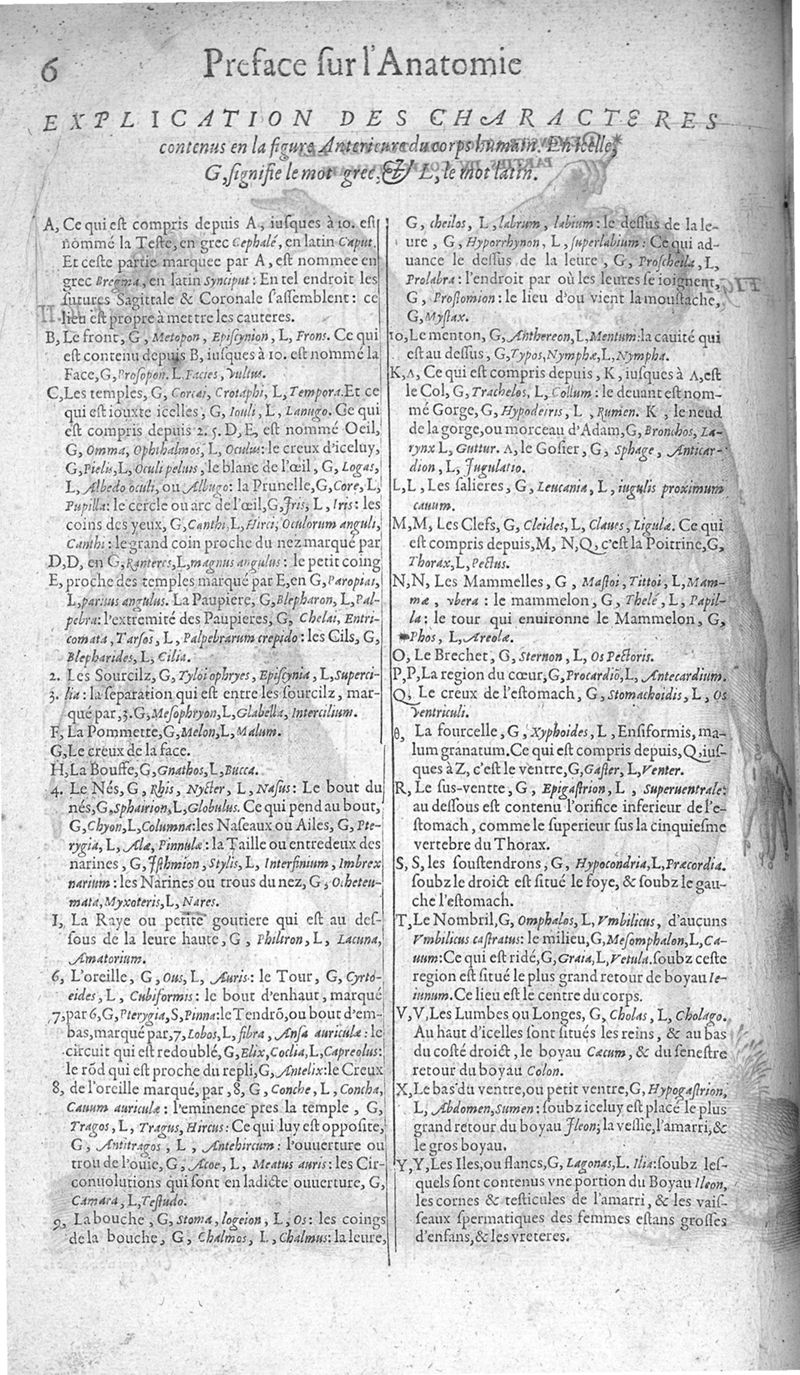 6 Preface ſur l'Anatomie
EXPLICATION DES CHARACTERES
contenus en la figure Anterieure du corps humain. En icelle,
G, ſignifie le mot grec, & L, le mot latin.
A, Ce qui eſt compris depuis A, iuſques à 10. eſt
nommé la Teſte, en grec Cephalé, en latin Caput.
Et ceſte partie marquee par A, eſt nommee en
grec Bregma, en latin Synciput: En tel endroit les
ſutures Sagittale & Coronale ſ'aſſemblent: ce
lieu eſt propre à mettre les cauteres.
B, Le front, G, Metopon, Epiſcynion, L, Frons. Ce qui
eſt contenu depuis B, iuſques à 10. eſt nommé la
Face, G, Proſopon. L, Facies, Vultus.
C, Les temples, G, Corſai, Crotaphi, L, Tempora. Et ce
qui eſt iouxte icelles, G, Iouli, L, Lanugo. Ce qui
eſt compris depuis 2. 5. D, E, eſt nommé Oeil,
G, Omma, Ophthalmos, L, Oculus: le creux d'iceluy,
G, Pielis, L, Oculi peluis, le blanc de l'œil, G, Logas,
L, Albedo oculi, ou Albugo: la Prunelle, G, Core, L,
Pupilla: le cercle ou arc de l'œil, G, Iris, L, Iris: les
coins des yeux, G, Canthi, L, Hirci, Oculorum anguli,
Canthi: le grand coin proche du nez marqué par
D, D, en G, Ranteres, L, magnus angulus: le petit coing
E, proche des temples marqué par E, en G, Paropiai,
L, paruus angulus. La Paupiere, G, Blepharon, L, Pal-
pebra: l'extremité des Paupieres, G, Chelai, Entri-
comata, Tarſos, L, Palpebrarum crepido: les Cils, G,
Blepharides, L, Cilia.
2. Les Sourcilz, G, Tyloi ophryes, Epiſcynia, L, Superci-
3. lia: la ſeparation qui eſt entre les ſourcilz, mar-
qué par, 3. G, Meſophryon, L, Glabella, Intercilium.
F, La Pommette, G, Melon, L, Malum.
G, Le creux de la face.
H, La Bouffe, G, Gnathos, L, Bucca.
4. Le Nés, G, Rhis, Nycter, L, Naſus: Le bout du
nés, G, Sphairion, L, Globulus. Ce qui pend au bout,
G, Chyon, L, Columna: les Naſeaux ou Ailes, G, Pte-
rygia, L, Alæ, Pinnulæ: la Taille ou entredeux des
narines, G, Iſthmion, Stylis, L, Interfinium, Imbrex
narium: les Narines ou trous du nez, G, Ocheteu-
mata, Myxoteris, L, Nares.
I, La Raye ou petite goutiere qui eſt au deſ-
ſous de la leure haute, G, Philtron, L, Lacuna,
Amatorium.
6, L'oreille, G, Ous, L, Auris: le Tour, G, Cyrto-
eides, L, Cubiformis: le bout d'enhaut, marqué
7, par 6, G, Pterygia, S, Pinna: le Tendrõ, ou bout d'em-
bas, marqué par, 7, Lobos, L, fibra, Anſa auriculæ: le
circuit qui eſt redoublé, G, Elix, Coclia, L, Capreolus:
le rõd qui eſt proche du repli, G, Antelix: le Creux
8, de l'oreille marqué, par, 8, G, Conche, L, Concha,
Cauum auriculæ: l'eminence pres la temple, G,
Tragos, L, Tragus, Hircus: Ce qui luy eſt oppoſite,
G, Antitragos, L, Antehircum: l'ouuerture ou
trou de l'ouïe, G, Acoe, L, Meatus auris: les Cir-
conuolutions qui ſont en ladicte ouuerture, G,
Camara, L, Teſtudo.
9, La bouche, G, Stoma, logeion, L, Os: les coings
de la bouche, G, Chalmos, L, Chalmus: la leure,
G, cheilos, L, labrum, labium: le deſſus de la le-
ure, G, Hyporrhynon, L, ſuperlabium: Ce qui ad-
uance le deſſus de la leure, G, Proſcheila, L,
Prolabra: l'endroit par où les leures ſe ioignent,
G, Proſtomion: le lieu d'ou vient la mouſtache,
G, Myſtax.
10, Le menton, G, Anthereon, L, Mentum: la cauité qui
eſt au deſſus, G, Typos, Nymphæ, L, Nympha.
K, Λ, Ce qui eſt compris depuis, K, iuſques à Λ, eſt
le Col, G, Trachelos, L, Collum: le deuant eſt nom-
mé Gorge, G, Hypodeiris, L, Rumen. K, le neud
de la gorge, ou morceau d'Adam, G, Bronchos, La-
rynx L, Guttur. Λ, le Goſier, G, Sphage, Anticar-
dion, L, Iugulatio.
L, L, Les ſalieres, G, Leucania, L, iugulis proximum
cauum.
M, M, Les Clefs, G, Cleides, L, Claues, Ligulæ. Ce qui
eſt compris depuis, M, N, Q, c'eſt la Poitrine, G,
Thorax, L, Pectus.
N, N, Les Mammelles, G, Maſtoi, Tittoi, L, Mam-
mæ, vbera: le mammelon, G, Thelé, L, Papil-
la: le tour qui enuironne le Mammelon, G,
Phos, L, Areolæ.
O, Le Brechet, G, Sternon, L, Os Pectoris.
P, P, La region du cœur, G, Procardiõ, L, Antecardium.
Q, Le creux de l'eſtomach, G, Stomachoidis, L, Os
Ventriculi.
θ, La fourcelle, G, Xyphoides, L, Enſiformis, ma-
lum granatum. Ce qui eſt compris depuis, Q, iuſ-
ques à Z, c'eſt le ventre, G, Gaſter, L, Venter.
R, Le ſus-ventre, G, Epigaſtrion, L, Superuentrale:
au deſſous eſt contenu l'orifice inferieur de l'e-
ſtomach, comme le ſuperieur ſus la cinquieſme
vertebre du Thorax.
S, S, les ſouſtendrons, G, Hypocondria, L, Præcordia.
ſoubz le droict eſt ſitué le foye, & ſoubz le gau-
che l'eſtomach.
T, Le Nombril, G, Omphalos, L, Vmbilicus, d'aucuns
Vmbilicus caſtratus: le milieu, G, Meſomphalon, L, Ca-
uum: Ce qui eſt ridé, G, Graia, L, Vetula. ſoubz ceſte
region eſt ſitué le plus grand retour de boyau Ie-
iunum. Ce lieu eſt le centre du corps.
V, V, Les Lumbes ou Longes, G, Cholas, L, Cholago.
Au haut d'icelles ſont ſitués les reins, & au bas
du coſté droict, le boyau Cæcum, & du ſeneſtre
retour du boyau Colon.
X, Le bas du ventre, ou petit ventre, G, Hypogaſtrion,
L, Abdomen, Sumen: ſoubz iceluy eſt placé le plus
grand retour du boyau Ileon; la veſſie, l'amarri, &
le gros boyau.
Y, Y, Les Iles, ou flancs, G, Lagonas, L. Ilia: ſoubz leſ-
quels ſont contenus vne portion du Boyau Ileon,
les cornes & teſticules de l'amarri, & les vaiſ-
ſeaux ſpermatiques des femmes eſtans groſſes
d'enfans, & les vreteres.